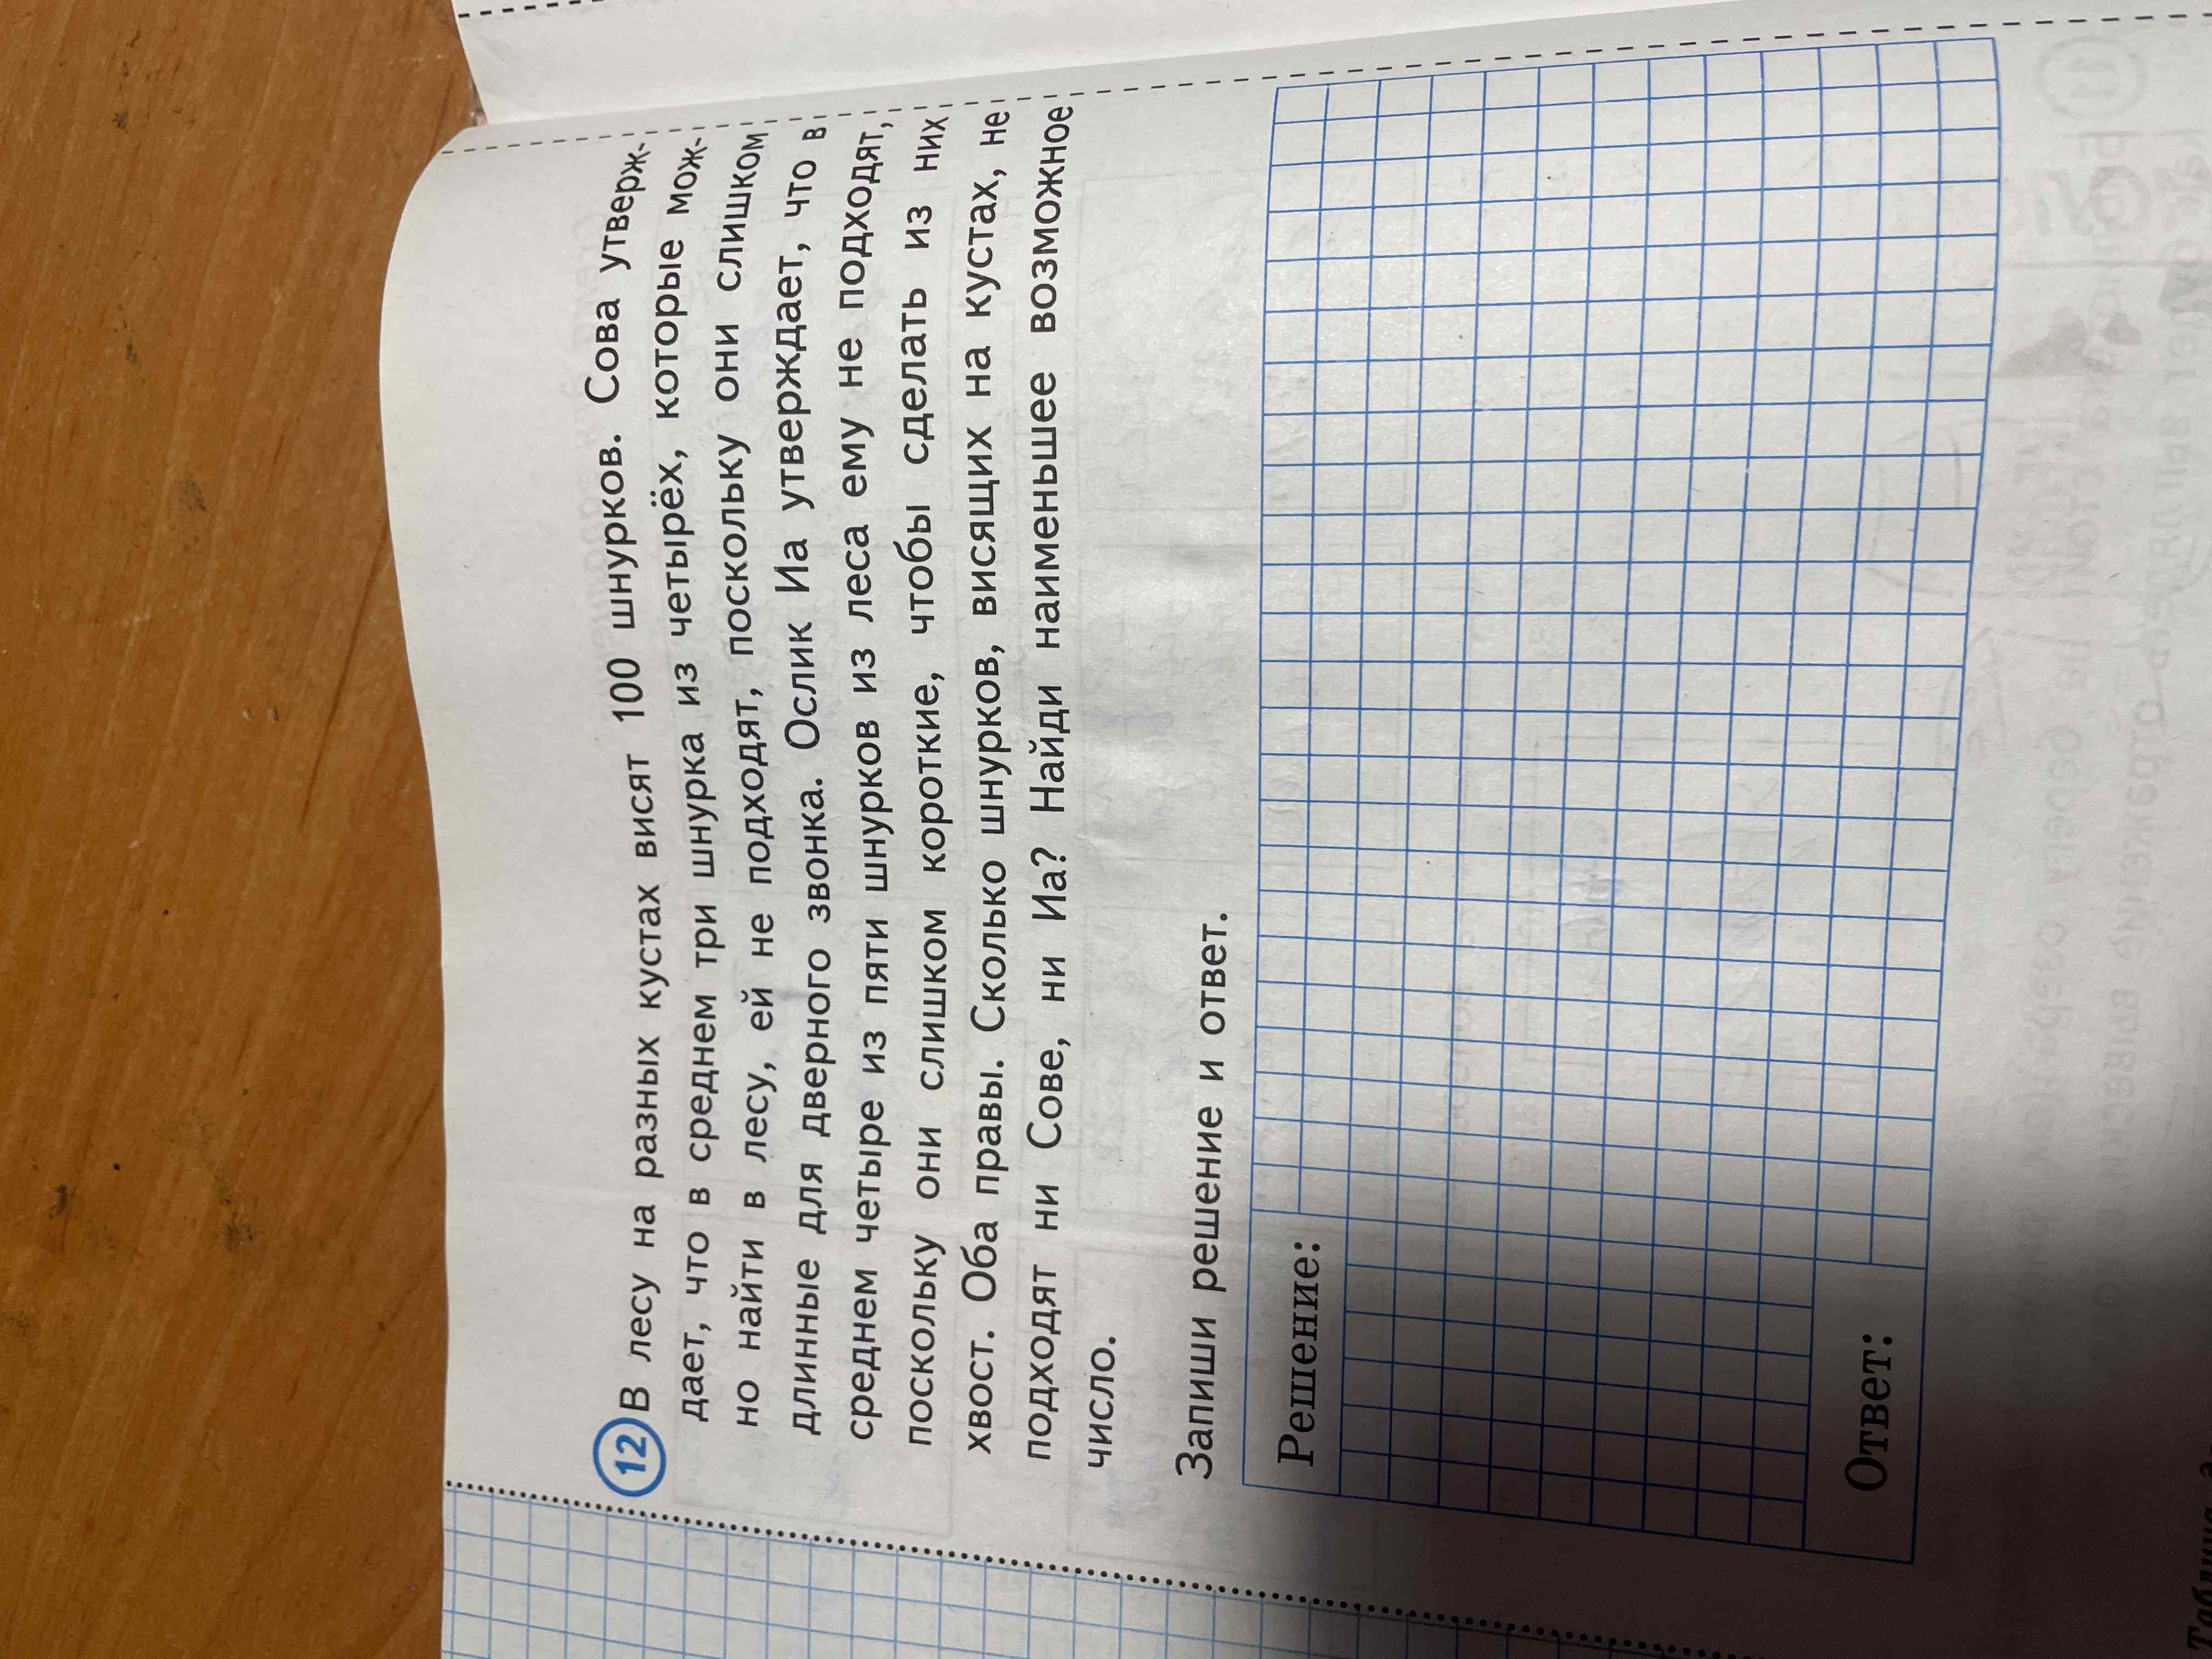 12 В лесу на разных кустах висят 100 шнурков. Сова утверж-
дает, что в среднем три шнурка из четырёх, которые мож-
но найти в лесу, ей не подходят, поскольку они слишком
длинные для дверного звонка. Ослик Иа утверждает, что в
среднем четыре из пяти шнурков из леса ему не подходят,
поскольку они слишком короткие, чтобы сделать из них
хвост. Оба правы. Сколько шнурков, висящих на кустах, не
подходят ни Сове, ни Иа? Найди наименьшее возможное
число.
Запиши решение и ответ.
Решение:
Ответ: